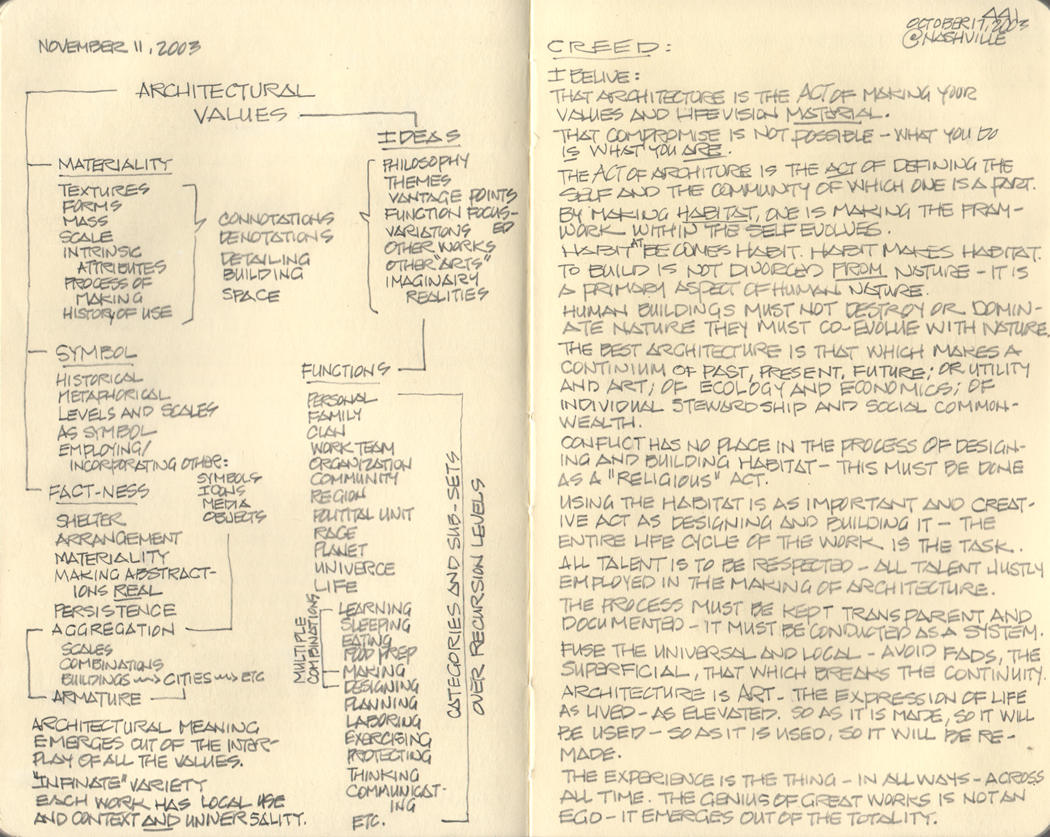 NOVEMBER 11, 2003
ARCHITECTURAL
VALUES
MATERIALITY
TEXTURES
FORMS
MASS
SCALE
INTRINSIC
ATTRIBUTES
PROCESS OF
MAKING
HISTORY OF USE
CONNOTATIONS
DENOTATIONS
DETAILING
BUILDING
SPACE
IDEAS
PHILOSOPHY
THEMES
VANTAGE POINTS
FUNCTION FOCUS-
VARIATIONS ED
OTHER WORKS
OTHER "ARTS"
IMAGINAIRY
REALITIES
SYMBOL
HISTORICAL
METAPHORICAL
LEVELS AND SCALES
AS SYMBOL
EMPLOYING/
INCORPORATING OTHER:
SYMBOLS
ICONS
MEDIA
OBJECTS
FACT-NESS
SHELTER
ARRANGEMENT
MATERIALITY
MAKING ABSTRACT-
IONS REAL
PERSISTENCE
AGGREGATION
SCALES
COMBINATIONS
BUILDINGS → CITIES → ETC
ARMATURE
FUNCTIONS
PERSONAL
FAMILY
CLAN
WORK TEAM
ORGANIZATION
COMMUNITY
REGION
POLITITAL UNIT
RACE
PLANET
UNIVERCE
LIFE
MULTIPLE
COMBINATIONS
LEARNING
SLEEPING
EATING
FOOD PREP
MAKING
DESIGNING
PLANNING
LABORING
EXERCISING
PROTECTING
THINKING
COMMUNICAT-
ING
ETC.
CATEGORIES AND SUB-SETS
OVER RECURSION LEVELS
ARCHITECTURAL MEANING
EMERGES OUT OF THE INTER-
PLAY OF ALL THE VALUES.
"INFINATE" VARIETY
EACH WORK HAS LOCAL USE
AND CONTEXT AND UNIVERSALITY.
441
OCTOBER 17, 2003
@NASHVILLE
CREED:
I BELIVE:
THAT ARCHITECTURE IS THE ACT OF MAKING YOUR
VALUES AND LIFE VISION MATERIAL.
THAT COMPROMISE IS NOT POSSIBLE - WHAT YOU DO
IS WHAT YOU ARE.
THE ACT OF ARCHITURE IS THE ACT OF DEFINING THE
SELF AND THE COMMUNITY OF WHICH ONE IS A PART.
BY MAKING HABITAT, ONE IS MAKING THE FRAM-
WORK WITHIN THE SELF EVOLVES.
HABITAT BECOMES HABIT. HABIT MAKES HABITAT.
TO BUILD IS NOT DIVORCED FROM NATURE - IT IS
A PRIMARY ASPECT OF HUMAN NATURE.
HUMAN BUILDINGS MUST NOT DESTROY OR DOMIN-
ATE NATURE THEY MUST CO-EVOLVE WITH NATURE.
THE BEST ARCHITECTURE IS THAT WHICH MAKES A
CONTINIUM OF PAST, PRESENT, FUTURE; OR UTILITY
AND ART; OF ECOLOGY AND ECONOMICS; OF
INDIVIDUAL STEWARDSHIP AND SOCIAL COMMON-
WEALTH.
CONFLICT HAS NO PLACE IN THE PROCESS OF DESIGN-
ING AND BUILDING HABITAT - THIS MUST BE DONE
AS A "RELIGIOUS" ACT.
USING THE HABITAT IS AS IMPORTANT AND CREAT-
IVE ACT AS DESIGNING AND BUILDING IT - THE
ENTIRE LIFE CYCLE OF THE WORK IS THE TASK.
ALL TALENT IS TO BE RESPECTED - ALL TALENT JUSTLY
EMPLOYED IN THE MAKING OF ARCHITECTURE.
THE PROCESS MUST BE KEPT TRANSPARENT AND
DOCUMENTED - IT MUST BE CONDUCTED AS A SYSTEM.
FUSE THE UNIVERSAL AND LOCAL - AVOID FADS, THE
SUPERFICIAL, THAT WHICH BREAKS THE CONTINUITY.
ARCHITECTURE IS ART - THE EXPRESSION OF LIFE
AS LIVED - AS ELEVATED. SO AS IT IS MADE, SO IT WILL
BE USED - SO AS IT IS USED, SO IT WILL BE RE-
MADE.
THE EXPERIENCE IS THE THING - IN ALL WAYS - ACROSS
ALL TIME. THE GENIUS OF GREAT WORKS IS NOT AN
EGO - IT EMERGES OUT OF THE TOTALITY.